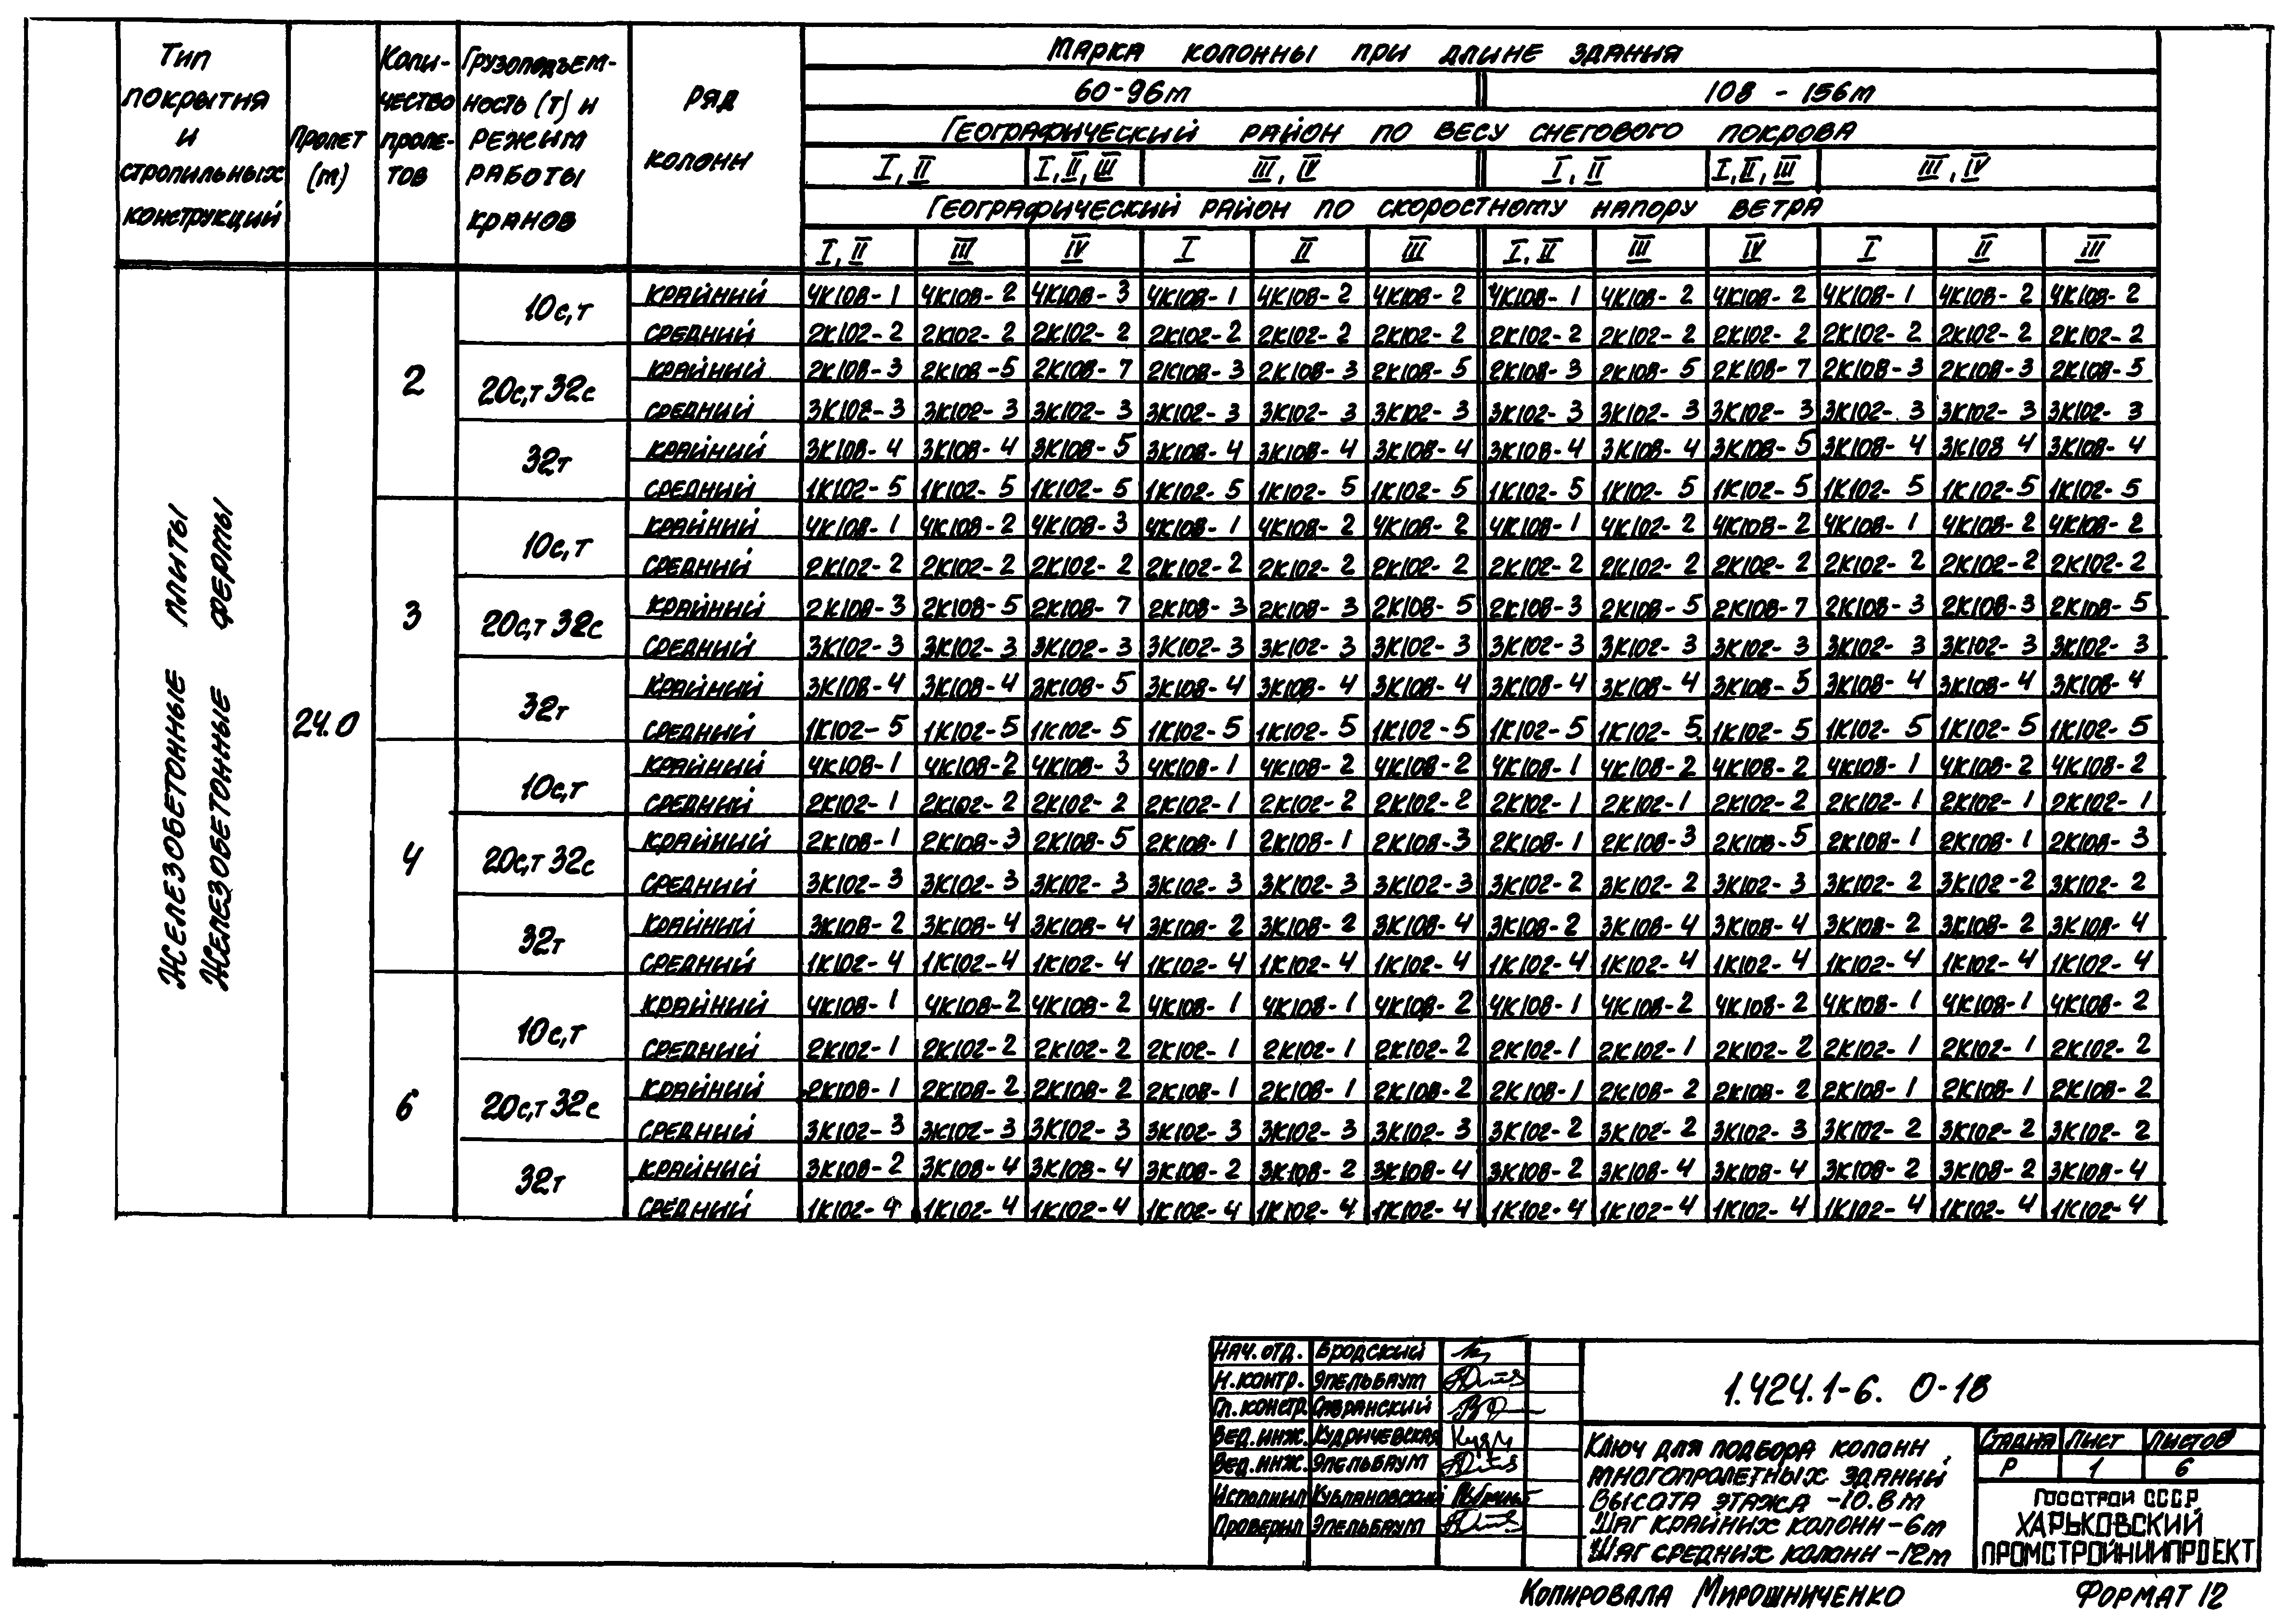 Тип покрытия и стропильных конструкций
Пролет (м)
Коли-чество проле-тов
Грузоподъем-ность (т) и режим работы кранов
Ряд колонн
Марка колонны при длине здания
60-96м 108 - 156м
Географический район по весу снегового покрова
I, II I, II, III III, IV I, II I, II, III III, IV
Географический район по скоростному напору ветра
I, II III IV I II III I, II III IV I II III
Железобетонные плиты
Железобетонные фермы
24.0
2
10с,т
крайний 4К108-1 4К108-2 4К108-3 4К108-1 4К108-2 4К108-2 4К108-1 4К108-2 4К108-2 4К108-1 4К108-2 4К108-2
средний 2К102-2 2К102-2 2К102-2 2К102-2 2К102-2 2К102-2 2К102-2 2К102-2 2К102-2 2К102-2 2К102-2 2К102-2
20с,т 32с
крайний 2К108-3 2К108-5 2К108-7 2К108-3 2К108-3 2К108-5 2К108-3 2К108-5 2К108-7 2К108-3 2К108-3 2К108-5
средний 3К102-3 3К102-3 3К102-3 3К102-3 3К102-3 3К102-3 3К102-3 3К102-3 3К102-3 3К102-3 3К102-3 3К102-3
32т
крайний 3К108-4 3К108-4 3К108-5 3К108-4 3К108-4 3К108-4 3К108-4 3К108-4 3К108-5 3К108-4 3К108 4 3К108-4
средний 1К102-5 1К102-5 1К102-5 1К102-5 1К102-5 1К102-5 1К102-5 1К102-5 1К102-5 1К102-5 1К102-5 1К102-5
3
10с,т
крайний 4К108-1 4К108-2 4К108-3 4К108-1 4К108-2 4К108-2 4К108-1 4К102-2 4К108-2 4К108-1 4К108-2 4К108-2
средний 2К102-2 2К102-2 2К102-2 2К102-2 2К102-2 2К102-2 2К102-2 2К102-2 2К102-2 2К102-2 2К102-2 2К102-2
20с,т 32с
крайний 2К108-3 2К108-5 2К108-7 2К108-3 2К108-3 2К108-5 2К108-3 2К108-5 2К108-7 2К108-3 2К108-3 2К108-5
средний 3К102-3 3К102-3 3К102-3 3К102-3 3К102-3 3К102-3 3К102-3 3К102-3 3К102-3 3К102-3 3К102-3 3К102-3
32т
крайний 3К108-4 3К108-4 3К108-5 3К108-4 3К108-4 3К108-4 3К108-4 3К108-4 3К108-5 3К108-4 3К108-4 3К108-4
средний 1К102-5 1К102-5 1К102-5 1К102-5 1К102-5 1К102-5 1К102-5 1К102-5 1К102-5 1К102-5 1К102-5 1К102-5
4
10с,т
крайний 4К108-1 4К108-2 4К108-3 4К108-1 4К108-2 4К108-2 4К108-1 4К108-2 4К108-2 4К108-1 4К108-2 4К108-2
средний 2К102-1 2К102-2 2К102-2 2К102-1 2К102-2 2К102-2 2К102-1 2К102-1 2К102-2 2К102-1 2К102-1 2К102-1
20с,т 32с
крайний 2К108-1 2К108-3 2К108-5 2К108-1 2К108-1 2К108-3 2К108-1 2К108-3 2К108-5 2К108-1 2К108-1 2К108-3
средний 3К102-3 3К102-3 3К102-3 3К102-3 3К102-3 3К102-3 3К102-2 3К102-2 3К102-3 3К102-2 3К102-2 3К102-2
32т
крайний 3К108-2 3К108-4 3К108-4 3К108-2 3К108-2 3К108-4 3К108-2 3К108-4 3К108-4 3К108-2 3К108-2 3К108-4
средний 1К102-4 1К102-4 1К102-4 1К102-4 1К102-4 1К102-4 1К102-4 1К102-4 1К102-4 1К102-4 1К102-4 1К102-4
6
10с,т
крайний 4К108-1 4К108-2 4К108-2 4К108-1 4К108-1 4К108-2 4К108-1 4К108-2 4К108-2 4К108-1 4К108-1 4К108-2
средний 2К102-1 2К102-2 2К102-2 2К102-1 2К102-1 2К102-2 2К102-1 2К102-1 2К102-2 2К102-1 2К102-1 2К102-2
20с,т 32с
крайний 2К108-1 2К108-2 2К108-2 2К108-1 2К108-1 2К108-2 2К108-1 2К108-2 2К108-2 2К108-1 2К108-1 2К108-2
средний 3К102-3 3К102-3 3К102-3 3К102-3 3К102-3 3К102-3 3К102-2 3К102-2 3К102-3 3К102-2 3К102-2 3К102-2
32т
крайний 3К108-2 3К108-4 3К108-4 3К108-2 3К108-2 3К108-4 3К108-2 3К108-4 3К108-4 3К108-2 3К108-2 3К108-4
средний 1К102-4 1К102-4 1К102-4 1К102-4 1К102-4 1К102-4 1К102-4 1К102-4 1К102-4 1К102-4 1К102-4 1К102-4
Нач. отд. Бродский
Н. контр. Эпельбаум
Гл. констр. Савранский
Вед. инж. Кудричевская
Вед. инж. Эпельбаум
Исполнил Кублановский
Проверил Эпельбаум
1.424.1-6. 0-18
Ключ для подбора колонн
многопролетных зданий,
Высота этажа -10.8м
Шаг крайних колонн -6м
Шаг средних колонн -12м
Стадия Лист Листов
Р 1 6
Госстрой СССР
ХАРЬКОВСКИЙ
ПРОМСТРОЙНИИПРОЕКТ
Копировала Мирошниченко Формат 12